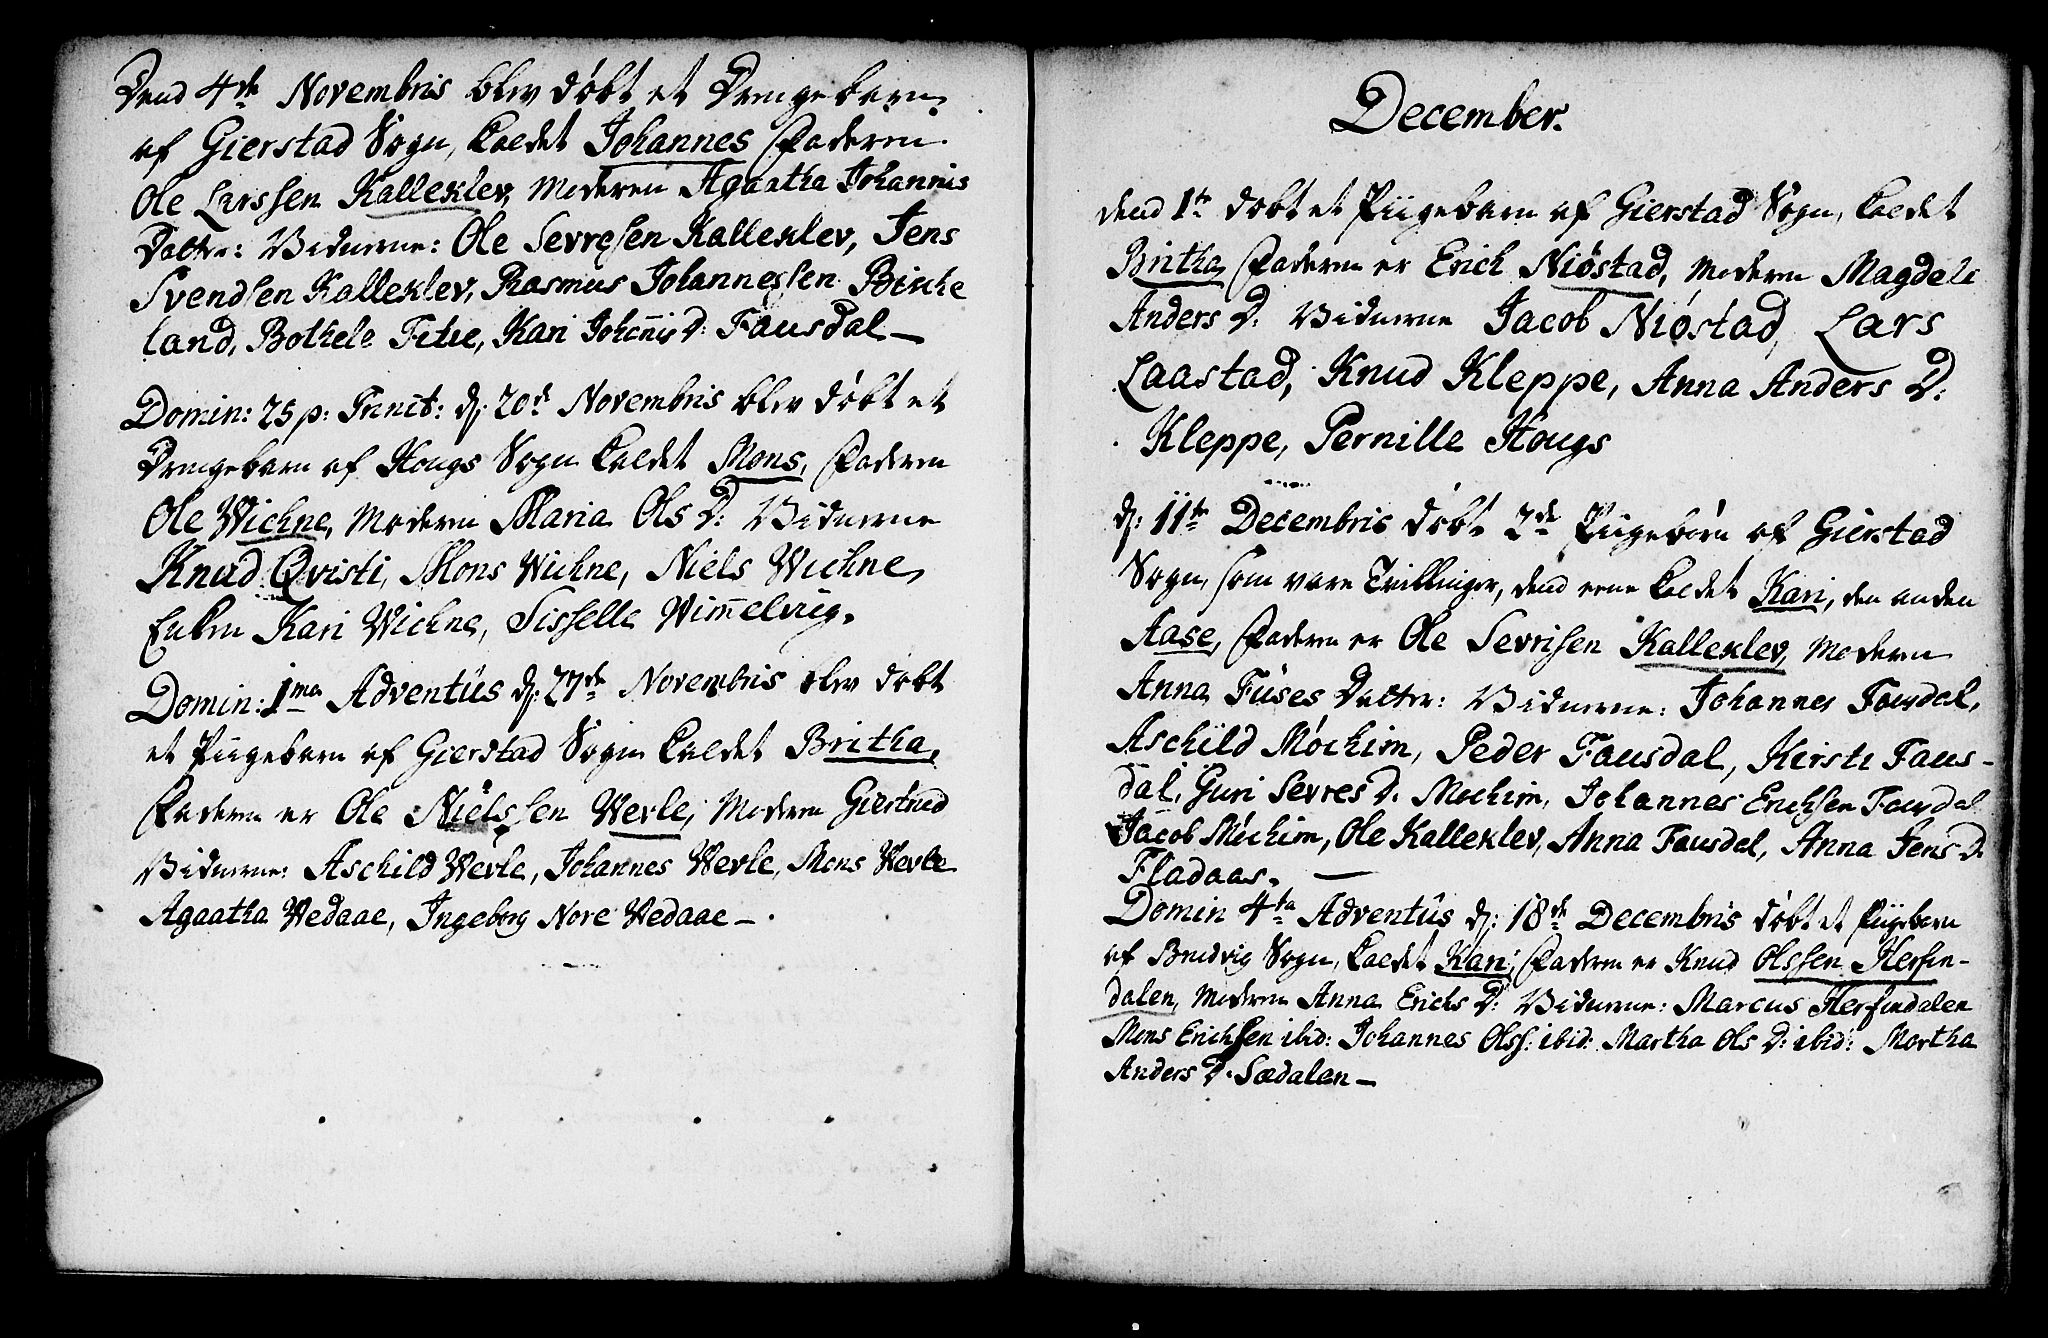 Dend 4de Novembris blev døbt et Drengebarn
af Gierstad Sogn, kaldet Johannes Faderen
Ole Larssen Kalleklev, Moderen Agaatha Johannis
Datter: Vidnerne: Ole Sevresen Kalleklev, Jens
Svendsen Kalleklev, Rasmus Johannessen Birke
land, Bothele Fitie, Kari Johañis D: Fausdal –
Domin: 25 p: Trinit: d: 20de Novembris blev døbt et
Drengebarn af Hougs Sogn kaldet Mons, Faderen
Ole Wichne, Moderen Maria Ols D: Vidnerne
Knud Qvisti, Mons Wichne, Niels Wichne,
Enken Kari Wichne, Sisselle Wim̄elvüg.
Domin: 1ma Adventûs d: 27de Novembris blev døbt
et Piigebarn af Gierstad Sogn kaldet Britha,
Faderen er Ole Nielssen Werle, Moderen Giertrud
Vidnerne: Aschild Werle, Johannes Werle, Mons Werle
Agaatha Wedaae, Ingeborg Nore Wedaae –
December.
dend 1te døbt et Piigebarn af Gierstad Sogn, kaldet
Britha, Faderen er Erich Niøstad, Moderen Magdele
Anders D: Vidnerne Jacob Niøstad, Lars
Laastad, Knud Kleppe, Anna Anders D:
Kleppe, Pernille Hougs
d: 11te Decembris døbt 2de Piigebørn af Gierstad
Sogn, som vare Tvillinger, dend eene kaldet Kari, den anden
Aase, Faderen er Ole Sevrisen Kalleklev, Moderen
Anna Füses Datter: Vidnerne: Johannes Fausdal,
Aschild Møchim, Peder Fausdal, Kirsti Faus-
dal, Guri Sevres D. Mochim, Johannes Erichsen Fausdal
Jacob Møchim, Ole Kalleklev, Anna Fausdal, Anna Jens D.
Fladaas. –
Domin 4ta Adventûs d: 18de Decembris døbt et Piigebarn
af Bredvig Sogn, kaldet Kari, Faderen er Knud Olssen Herfin-
dalen, Moderen Anna Erichs D: Vidnerne: Marcus Herfindalen
Mons Erichsen ibid: Johannes Olss: ibid: Martha Ols D: ibid: Martha
Anders D. Sædalen –